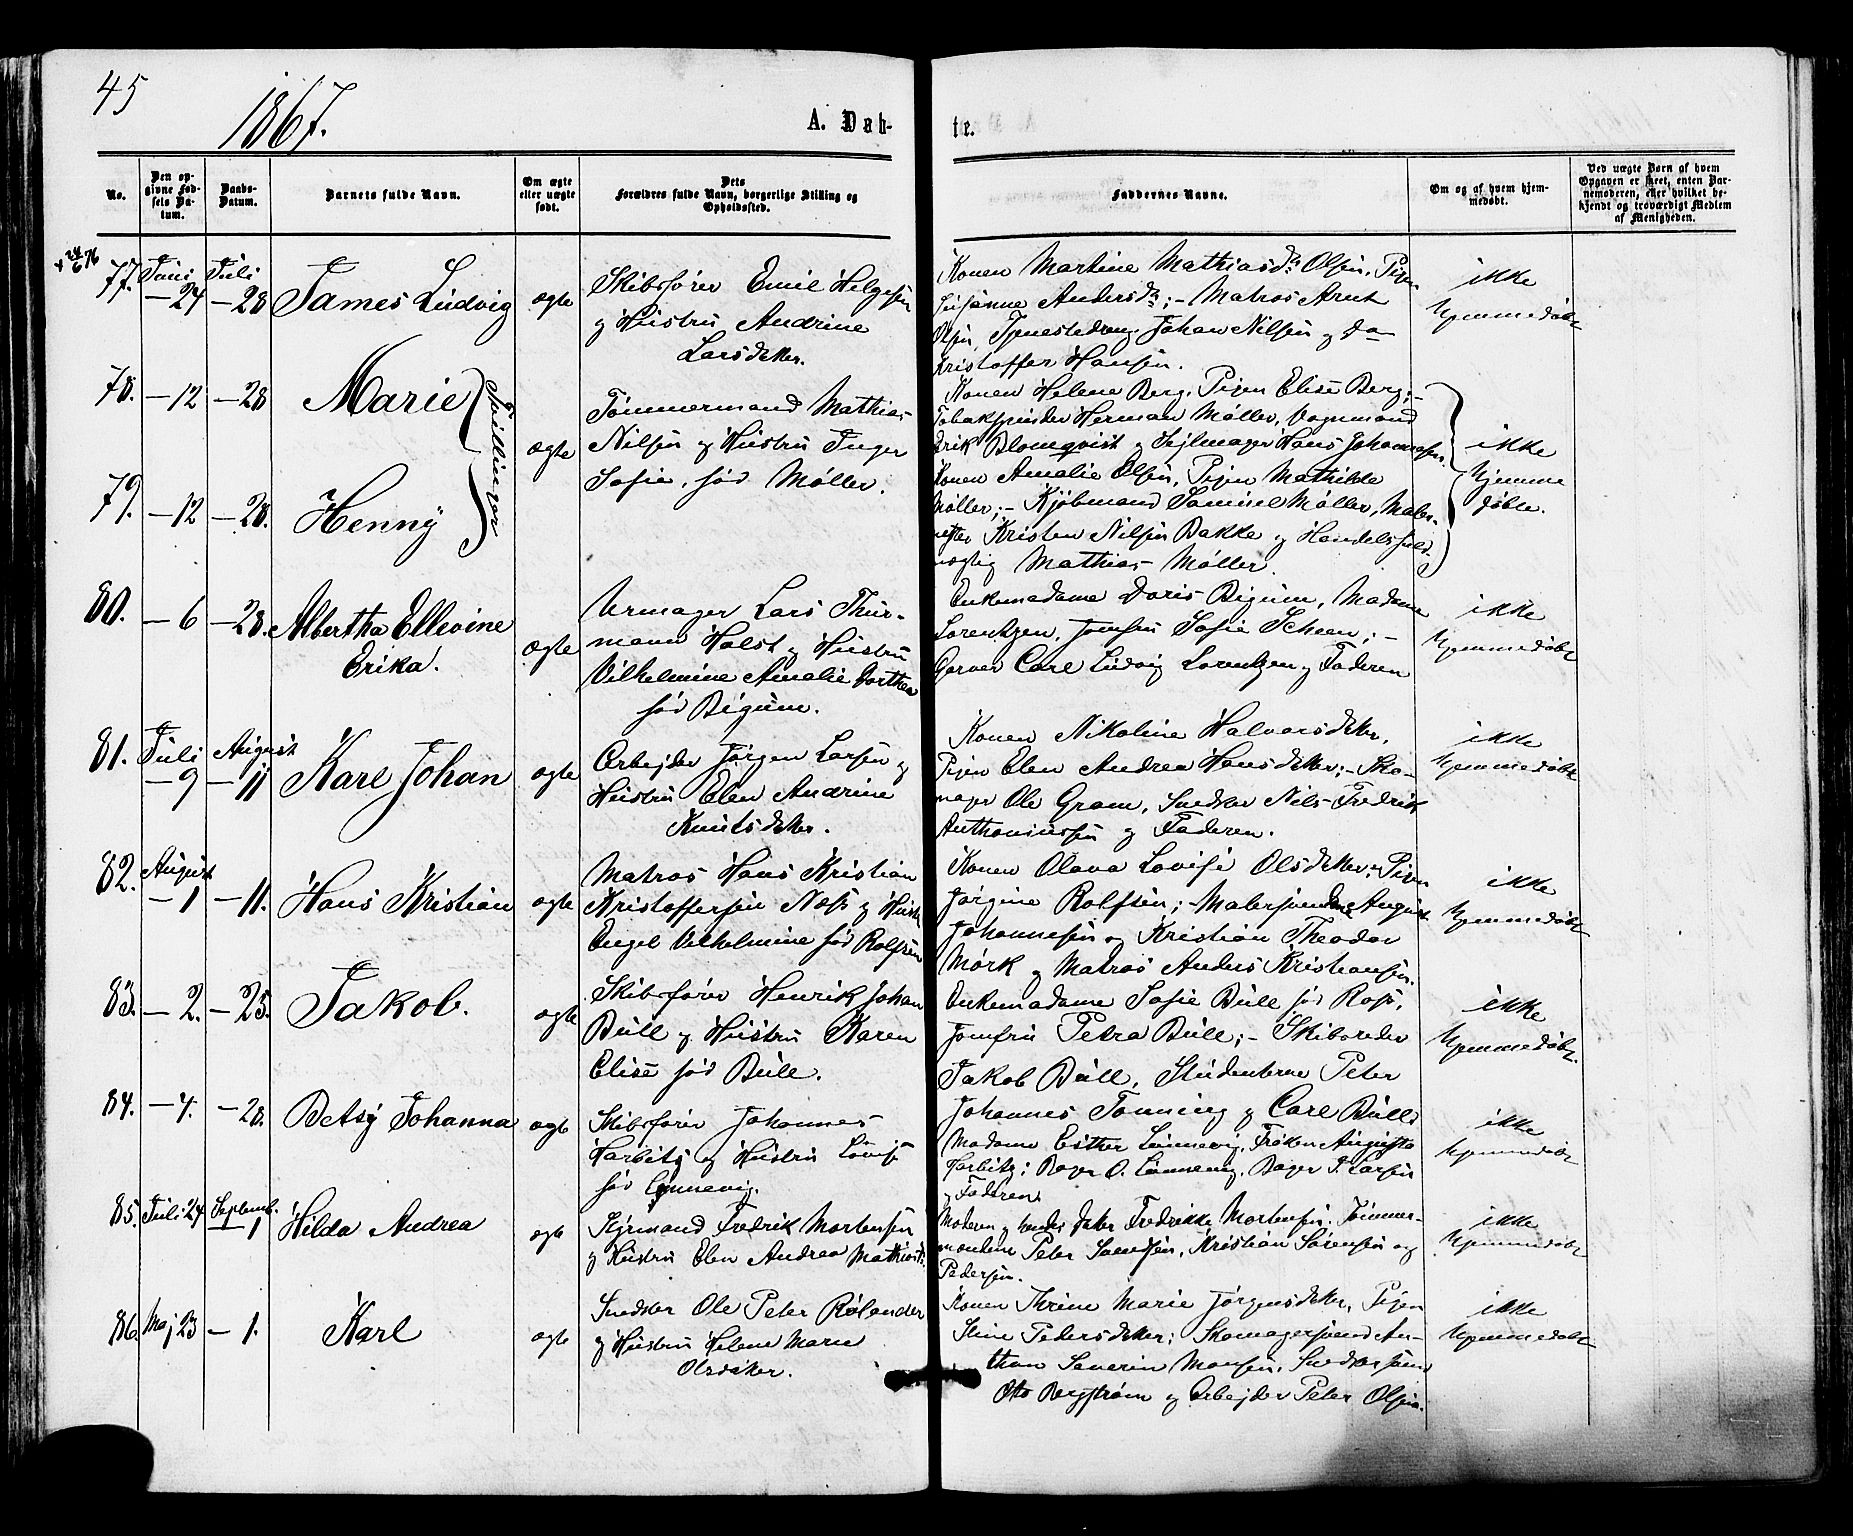 45
1867.
A. Døb-
te.
No.
Den op-
givne Fød-
sels Da-
tum.
Daabs-
Datum.
Barnets fulde Navn.
Om ægte
eller uægte
født.
Dets
Forældres fulde Navn, borgerlige Stilling og
Opholdssted.
Faddernes Navne.
Om og af hvem hjem-
medøbt.
Ved uægte Børn af hvem
Opgaven er skeet, enten Bar-
nemoderen, eller hvilket be-
kjendt og troværdigt Medlem
af Menigheden.
77. Juni
— 24
Juli
— 28
James Ludvig
ægte
Skibsfører Emil Helgesen
og Hustru Andrine
Larsdatter.
Konen Martine Mathiasdr Olsen, Pigen
Susanne Andersdr; - Matros Arnt
Olsen, Tjenestedreng Johan Nilsen og do
Kristoffer Hansen.
ikke
hjemmedøbt
78. — 12 — 28
Marie
Tvillinger
ægte
Tømmermand Mathias
Nilsen og Hustru Inger
Sofie, født Møller.
Konen Helene Berg, Pigen Elise Berg; -
Tobakspinder Herman Møller, Vognmand
Erik Blomqvist og Sejlmager Hans Johannesen.
79. — 12 — 28.
Henny
Konen Amalie Olsen, Pigen Mathilde
Møller; - Kjøbmand Samuel Møller, Maler-
Kristen Nilsen Bakke og Handelsfuld-
mægtig Mathias Møller.
ikke
hjemme
døbte.
80. — 6 — 28.
Albertha Ellevine
Erika.
ægte
Urmager Lars Thur-
mann Holst og Hustru
Vilhelmine Amalie Dorthea
født Bigum.
Enkemadame Doris Bigum, Madame
Lorentzen, Jomfru Sofie Scheen; -
Garver Carl Ludvig Lorentzen og Faderen
ikke
hjemmedøbt
81. Juli
— 9
August
— 11
Karl Johan
ægte
Arbejder Jørgen Larsen og
Hustru Elen Andrine
Knutsdatter.
Konen Nikoline Halvorsdatter,
Pigen Elen Andrea Hansdatter; - Sko-
mager Ole Gram, Snedker Nils Fredrik
Anthoniussen og Faderen.
ikke
hjemmedøbt
82. August
— 1 — 11.
Hans Kristian
ægte
Matros Hans Kristian
Kristoffersen Næss og Hustru
Engel Vilhelmine født Rolfsen
Konen Olava Lovise Olsdatter, Pigen
Jørgine Rolfsen; - Malersvendene August
Johannesen og Kristian Theodor
Mørk og Matros Anders Kristiansen.
ikke
hjemmedøbt
83. — 2. — 25.
Jakob.
ægte
Skibsfører Henrik Johan
Bull og Hustru Karen
Elise født Bull.
Enkemadame Sofie Bull født Ross,
Jomfru Petra Bull; - Skibsreder
Jakob Bull, Studenterne Peter
Johannes Tonning og Carl Bull
ikke
hjemmedøbt.
84. — 4. — 28.
Betsy Johanna
ægte
Skibsfører Johannes
Harbitz og Hustru Lovise
født Linnevig.
Madame Esther Linnevig, Frøken Augusta
Harbitz; Bager O. Linnevig, Bager P. Larsen
og Faderen.
ikke
hjemmedøbt
85. Juli 24
Septemb.
— 1
Hilda Andrea
ægte
Styrmand Fredrik Mortensen
og Hustru Elen Andrea Mathiasdr.
Moderen og hendes Datter Fredrikke Mortensen. Tømmer-
mændene Peter Samsen, Kristian Sørensen og
Pedersen.
ikke
hjemmedøbt
86. Maj 23 — 1.
Karl
ægte
Snedker Ole Peter Rolander
og Hustru Helene Marie
Olsdatter.
Konen Thrine Marie Jørgensdatter, Pigen
Stine Pedersdatter; Skomagersvend An-
thon Severin Monsen, Snedkersvend
Otto Bergstrøm og Arbejder Peter Olsen.
ikke
hjemmedøbt